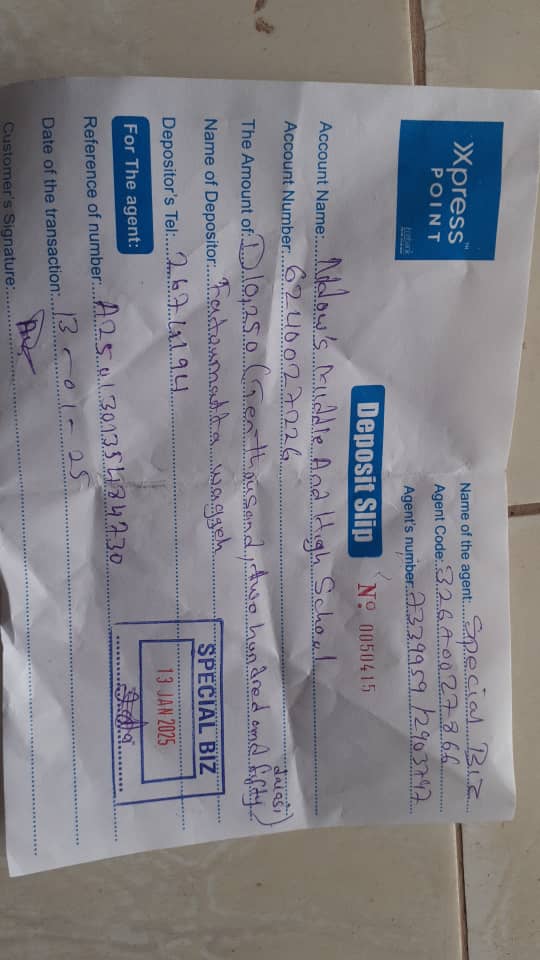 Xpress™
POINT
Ecobank
Name of the agent: Special Biz
Agent Code: 32670027866
Agent's number: 7339959 / 2903797
Deposit Slip
Nº 0050415
Account Name: Ndow's Middle And High School
Account Number: 6240027226
The Amount of: D10,250 (Ten thousand, two hundred and fifty dalasi)
Name of Depositor: Fatoumatta waggeh
Depositor's Tel:
For The agent:
Reference of number:
Date of the transaction: 13-01-25
Customer's Signature:
SPECIAL BIZ
13 JAN 2025